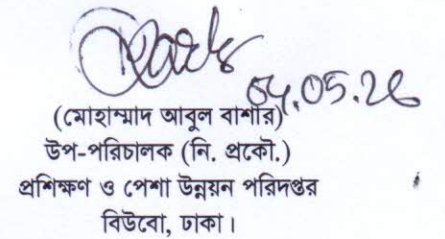 04.05.26
(মোহাম্মাদ আবুল বাশার)
উপ-পরিচালক (নি. প্রকৌ.)
প্রশিক্ষণ ও পেশা উন্নয়ন পরিদপ্তর
বিউবো, ঢাকা।